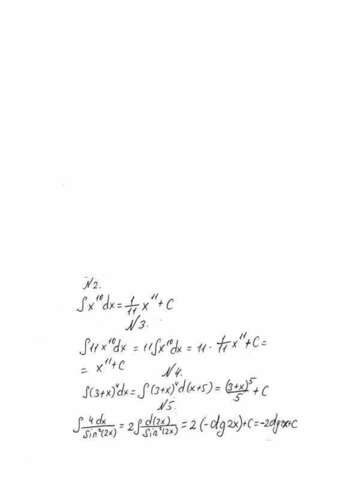 N2.
∫x¹⁰dx = 1/11 x¹¹ + C
N3.
∫11x¹⁰dx = 11∫x¹⁰dx = 11 · 1/11 x¹¹ + C =
= x¹¹ + C
N4.
∫(3+x)⁴dx = ∫(3+x)⁴d(x+5) = (3+x)⁵/5 + C
N5.
∫4dx/sin²(2x) = 2∫d(2x)/sin²(2x) = 2(-ctg2x)+C = -2ctg2x+C